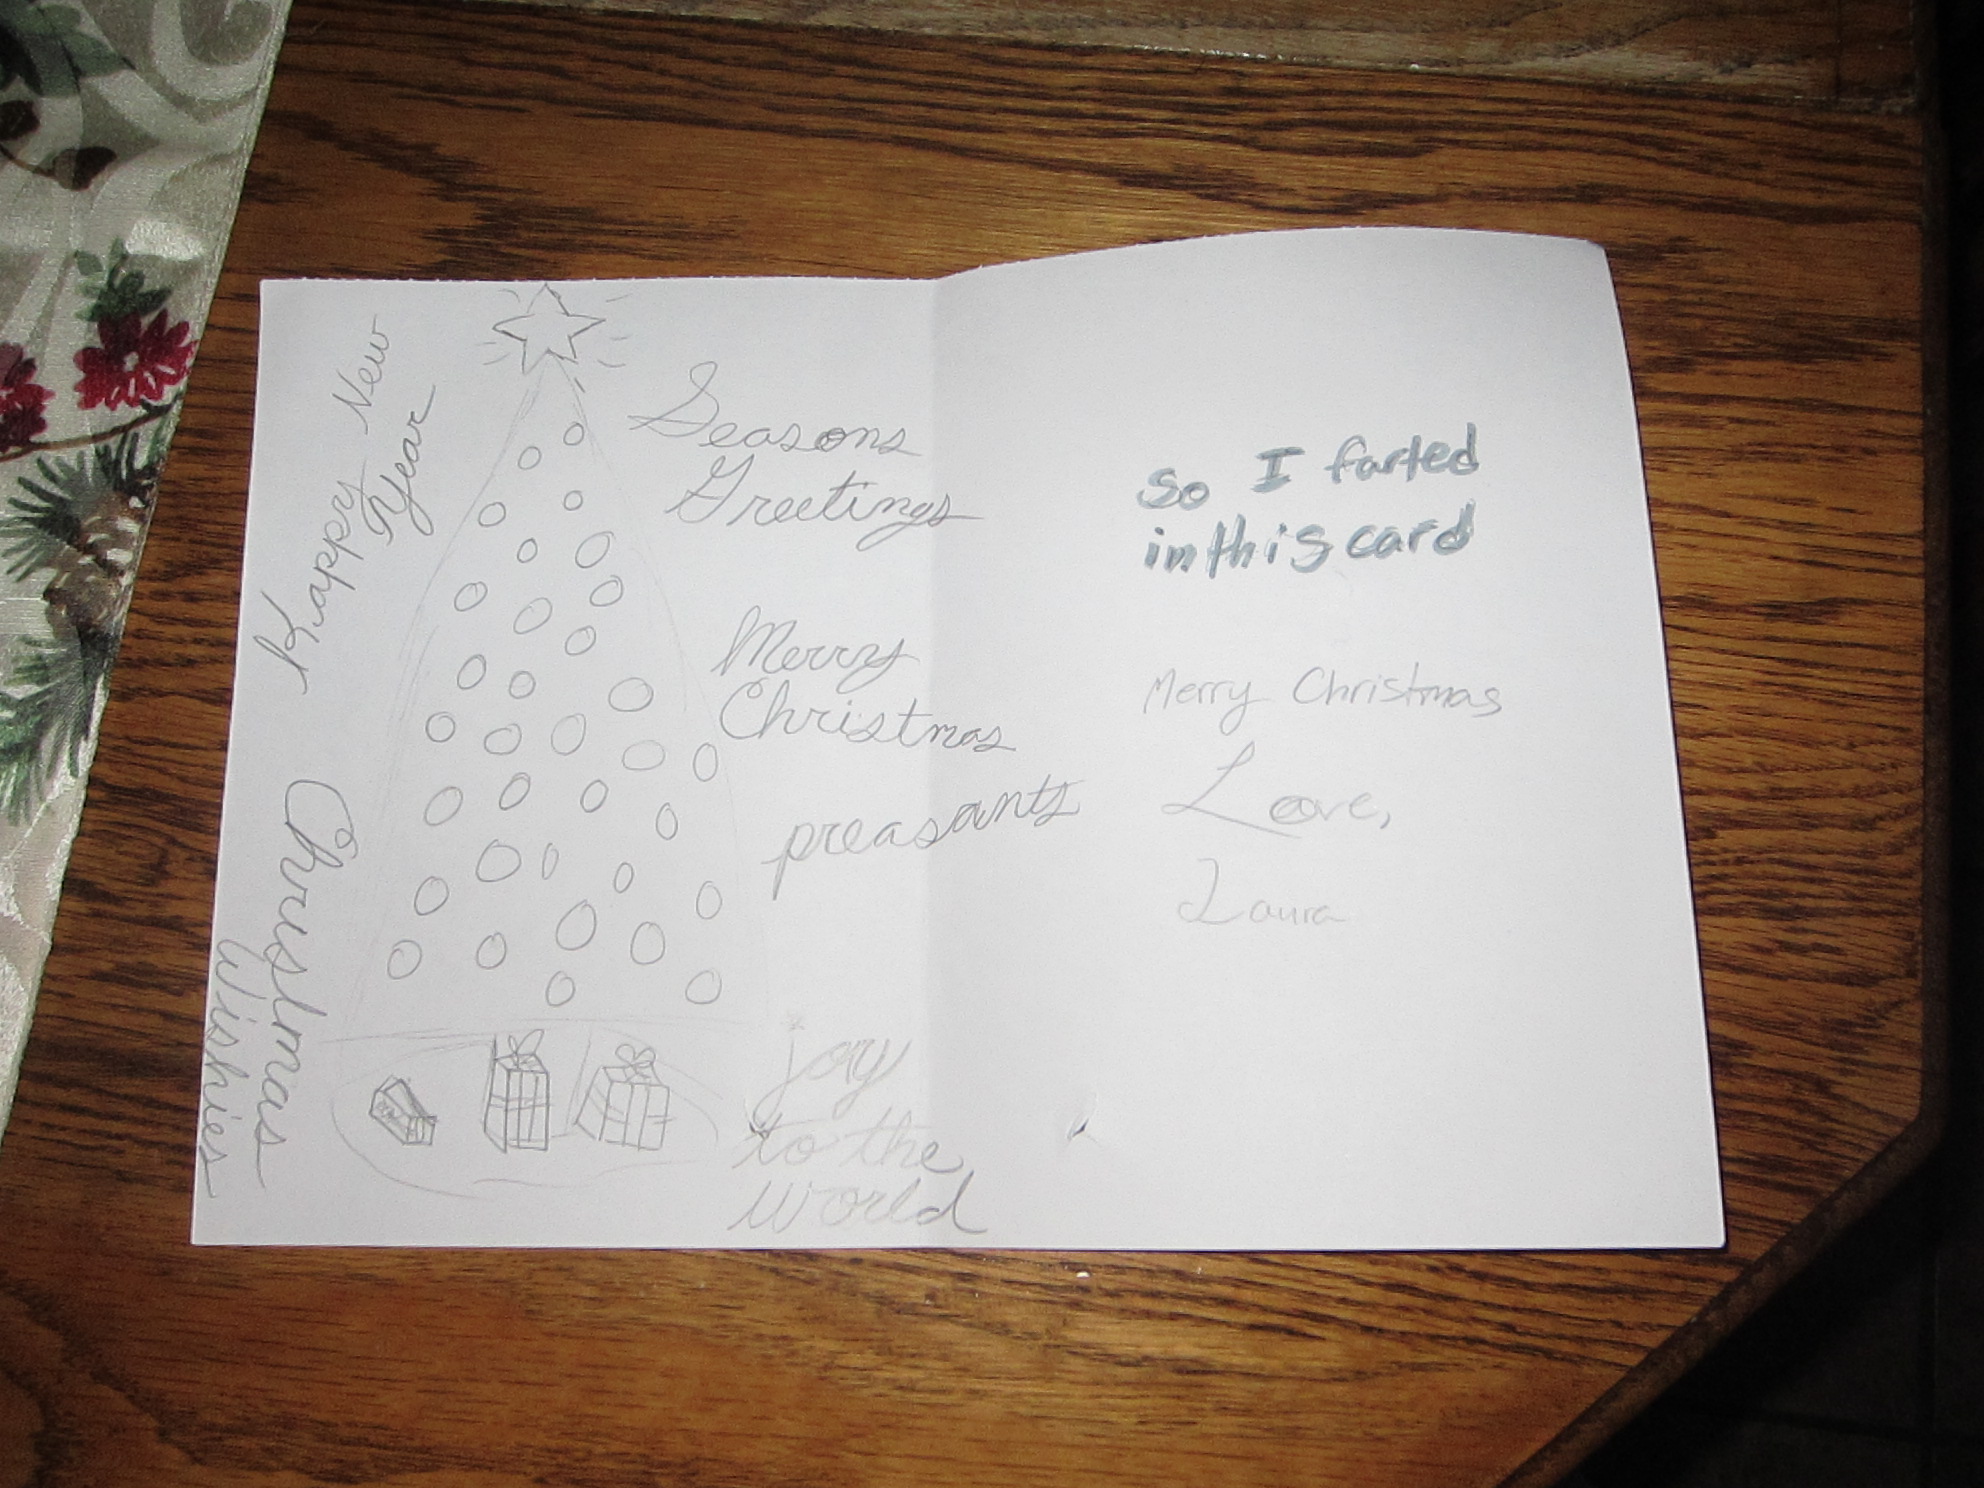 Happy New
Year
Christmas
Wishies
Seasons
Greetings
Merry
Christmas
preasants
joy
to the
World
So I farted
in this card
Merry Christmas
Love,
Laura